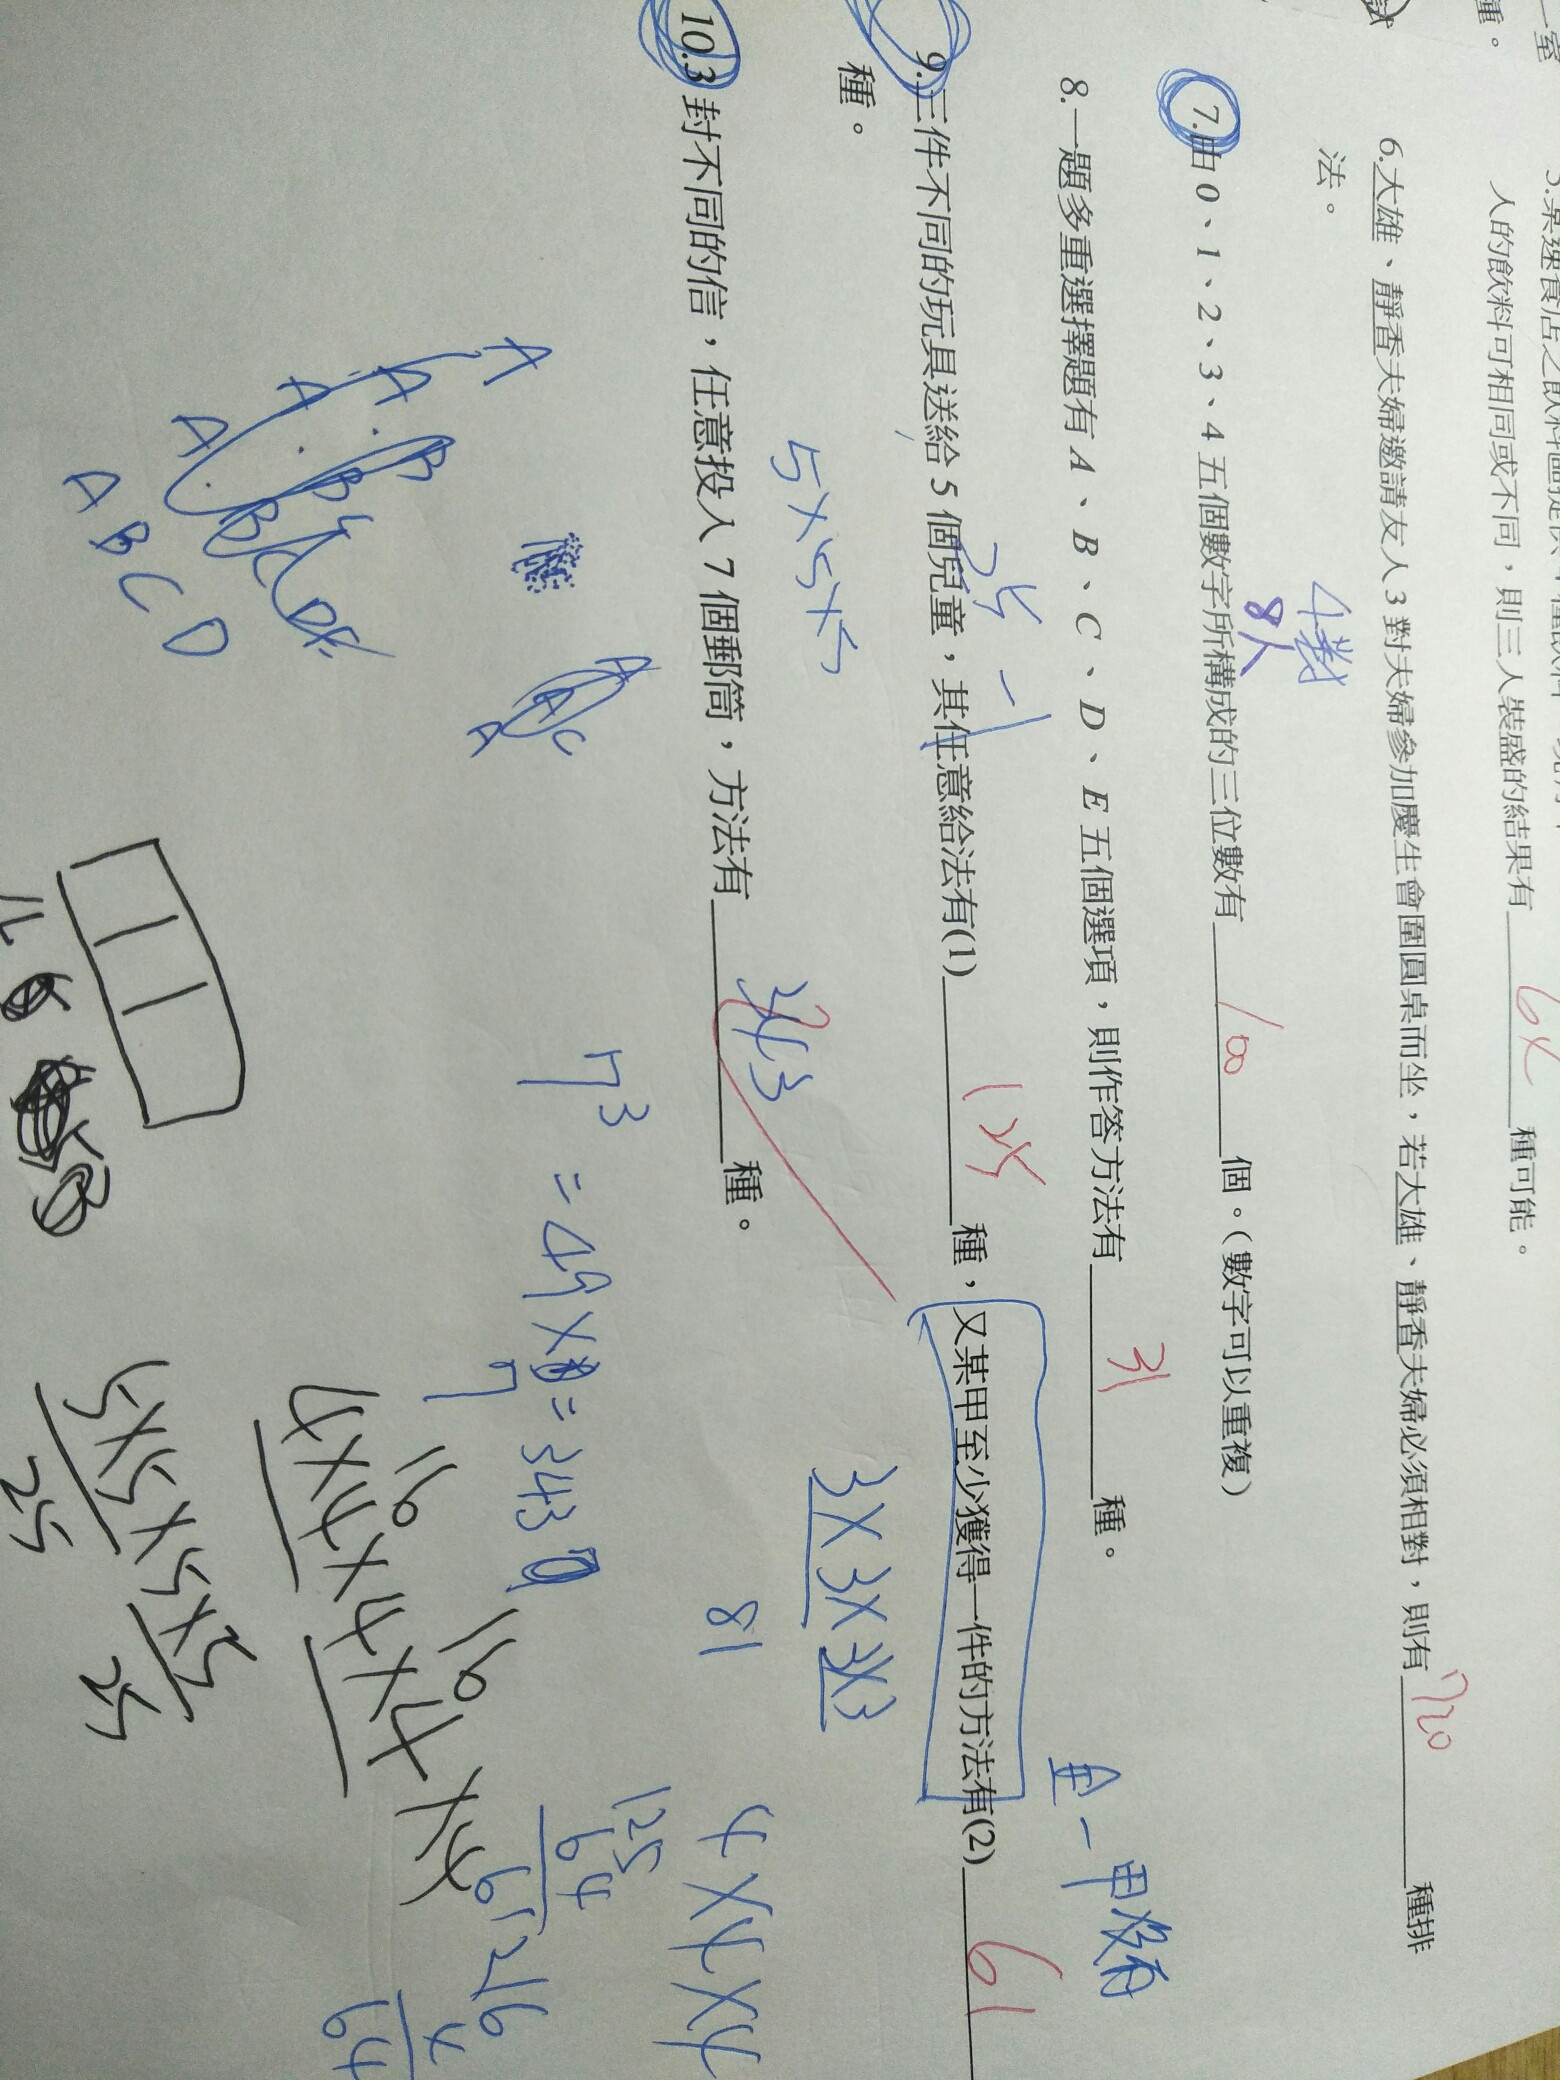 室
試
種。
5.某速食店之飲料區提供4種飲料
人的飲料可相同或不同，則三人裝盛的結果有 64 種可能。
6.大雄、靜香夫婦邀請友人3對夫婦參加慶生會圍圓桌而坐，若大雄、靜香夫婦必須相對，則有 720 種排
法。
4對
8人
7.由0、1、2、3、4五個數字所構成的三位數有 100 個。(數字可以重複)
8.一題多重選擇題有A、B、C、D、E五個選項，則作答方法有 31 種。
2⁵-1
全-甲沒有
9.三件不同的玩具送給5個兒童，其任意給法有(1) 125 種，又某甲至少獲得一件的方法有(2) 61
種。
5×5×5
3×3×3×3
81
4×4×4
10.3封不同的信，任意投入7個郵筒，方法有 343 種。
7³=49×7=343
125
64
61
216
A
A B
A B C
A B C D
A B C D
4×4×4×4×4
16
16
5×5×5×5
25
25